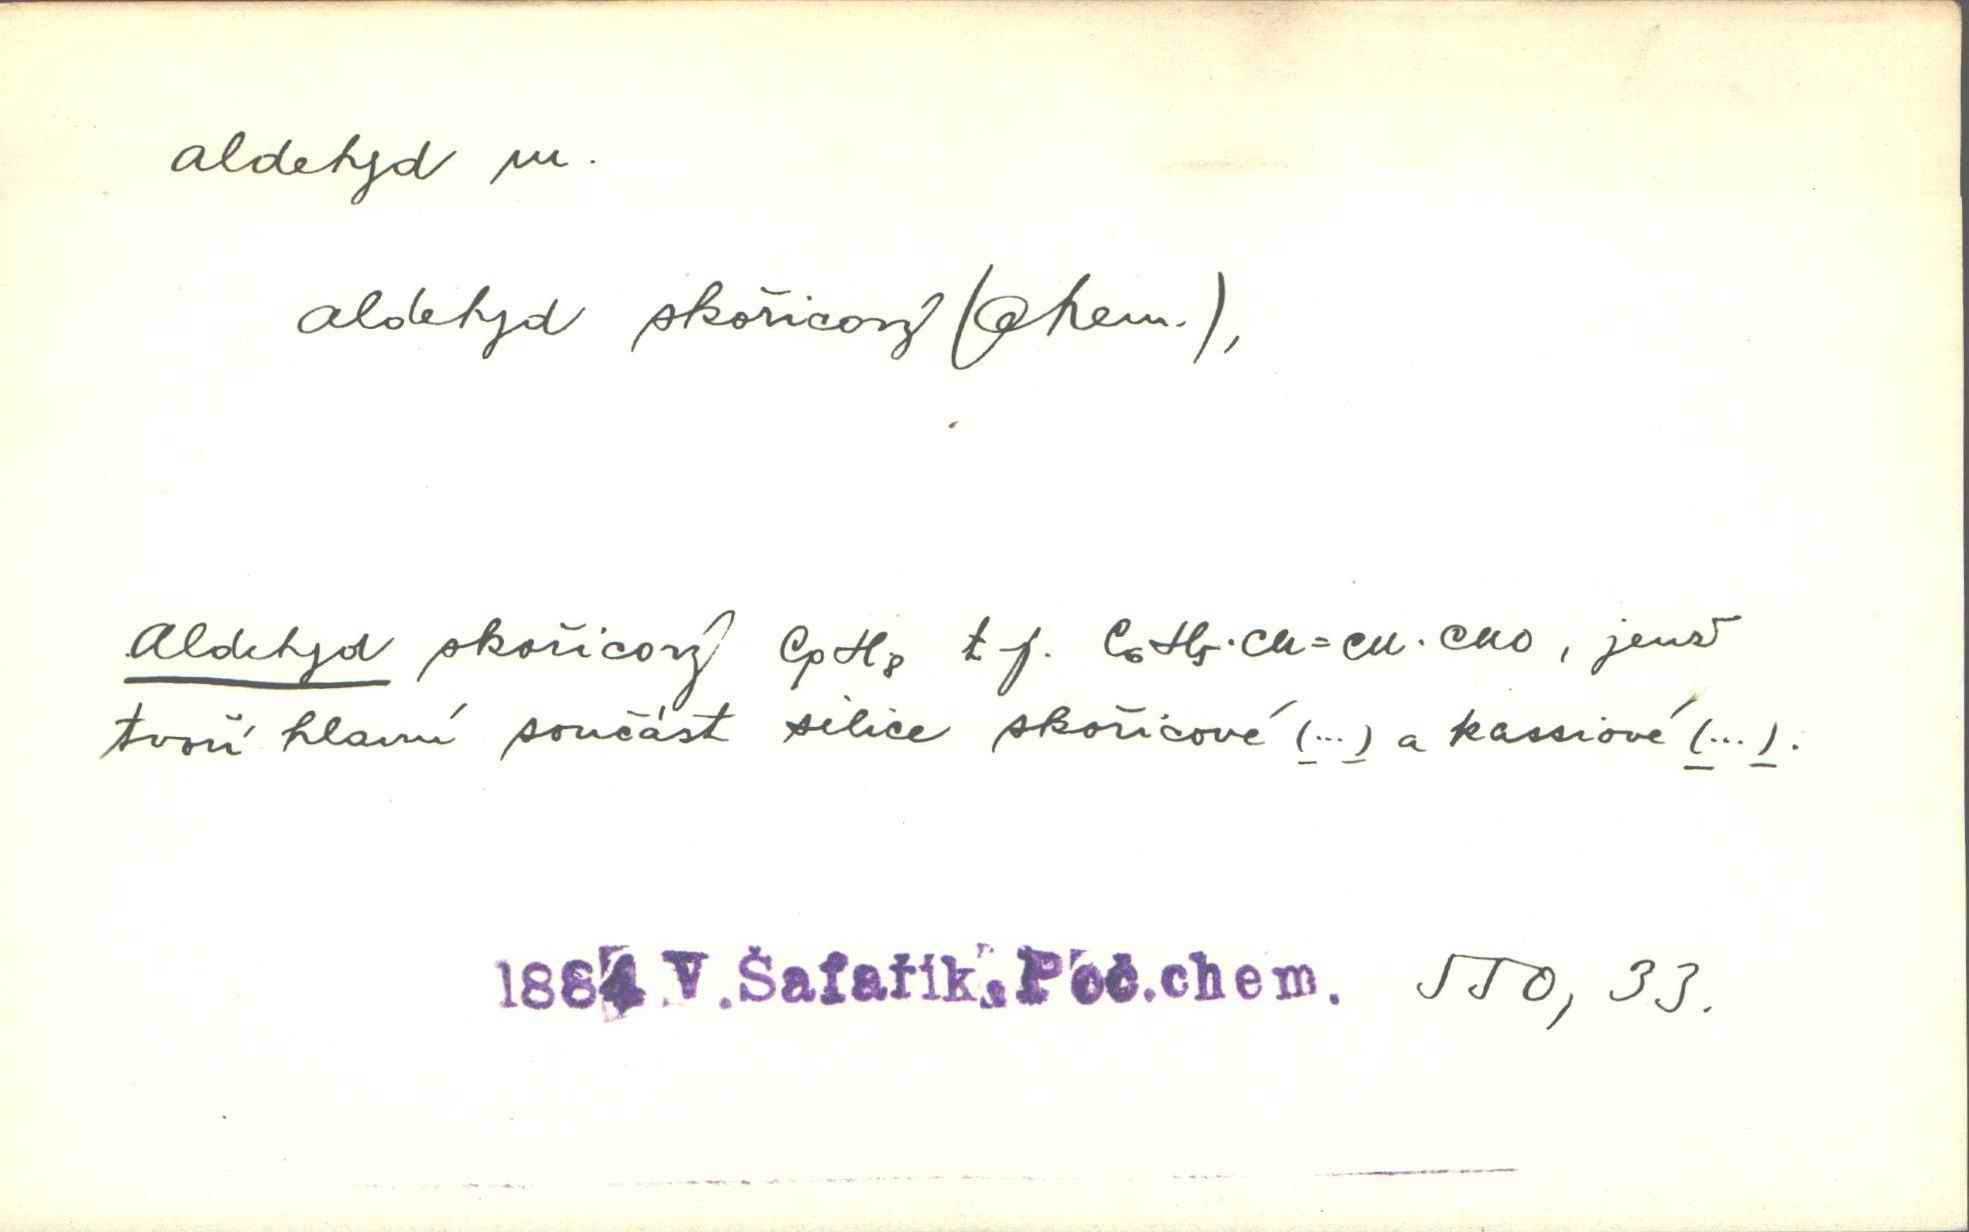 aldehyd m.
aldehyd skořicový (Chem.),
Aldehyd skořicový C₉H₈ t j. C₆H₅·CH=CH·CHO, jenž
tvoří hlavní součást silice skořicové (...) a kassiové (...).
1884 V. Šafařík, Poč.chem. 550, 33.